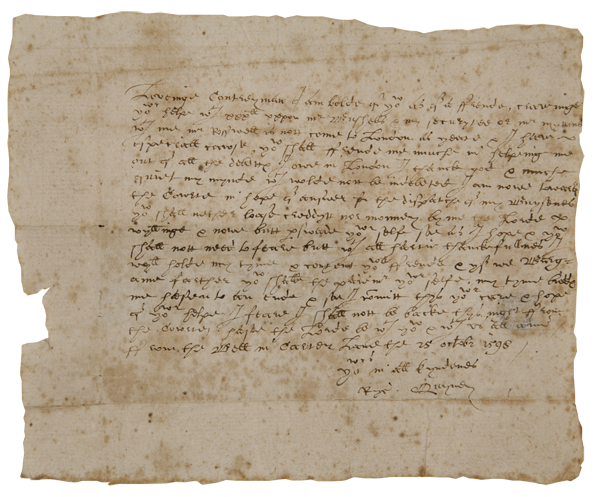 Loveinge Contreyman I am bolde of yow as of a ffrende, craveinge
yowr helpe wth xxxll vppon mr Bushells & my securytee or mr myttons
wth me mr Rosswell is nott come to London as yeate & I have
especiall cawse yow shall ffrende me muche in helpeing me
out of all the debtts I owe in London I thancke god & muche
quiet my mynde wch wolde nott be indebted I am nowe towards
the Cowrte in hope of answer for the dispatche of my Buysenes
yow shall nether loase creddytt nor monney by me the Lorde
wyllinge & nowe butt pswade yowr selfe soe as I hope & yow
shall nott need to feare butt wth all hartie thanckefullnes I
wyll holde my tyme & content yowr ffrende & yf we Barg-
aine farther yow shall be the paiemr yowr selfe. my tyme bidds
me hasten to an ende & soe I committ thys yowr care & hope
of yowr helpe I feare I shall nott be backe thys night ffrom
the Cowrte. haste the Lorde be wth yow & wth vs all amen
ffrom the Bell in Carter Lane the 25 octobr 1598
yowrs in all kyndenes
Ryc. Quyney